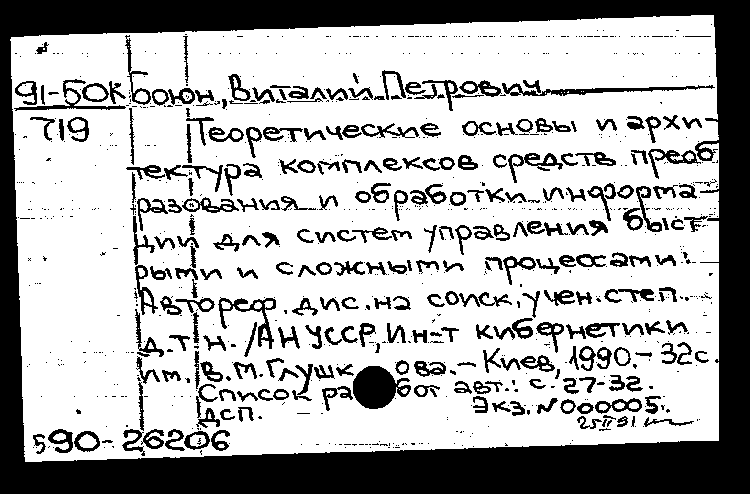 91-50К Боюн, Виталий Петрович
719 Теоретические основы и архи-
тектура комплексов средств преоб
разования и обработки информа-
ции для систем управления быст-
рыми и сложными процессами:
Автореф. дис. на соиск. учен. степ.
д.т.н. /АН УССР, Ин-т кибернетики
им. В.М. Глушкова. - Киев, 1990. - 32с.
Список работ авт.: с. 27-32.
ДСП. Экз. №000005.
25 II 91
590-26206